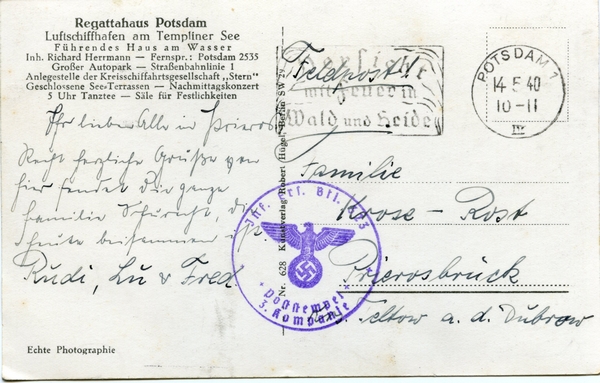 Regattahaus Potsdam
Luftschiffhafen am Templiner See
Führendes Haus am Wasser
Inh. Richard Herrmann - Fernspr.: Potsdam 2535
Großer Autopark - Straßenbahnlinie 1
Anlegestelle der Kreisschiffahrtsgesellschaft „Stern"
Geschlossene See-Terrassen - Nachmittagskonzert
5 Uhr Tanztee - Säle für Festlichkeiten
Ihr lieben Alle in Prieros
Recht herzliche Grüße von
hier sendet die ganze
Familie Schuricht, die
heute beisammen ist.
Rudi, Lu & Fred.
Echte Photographie
Nr. 628 Kunstverlag Robert Hügel, Berlin SW
Feldpost!
mit Feuer in
Wald und Heide
POTSDAM 1
14 5 40
10-11
Familie
Krose - Rost
Prierosbrück
Teltow a. d. Dubrow
Inf. Ers. Btl.
Poststempel
3. Kompanie